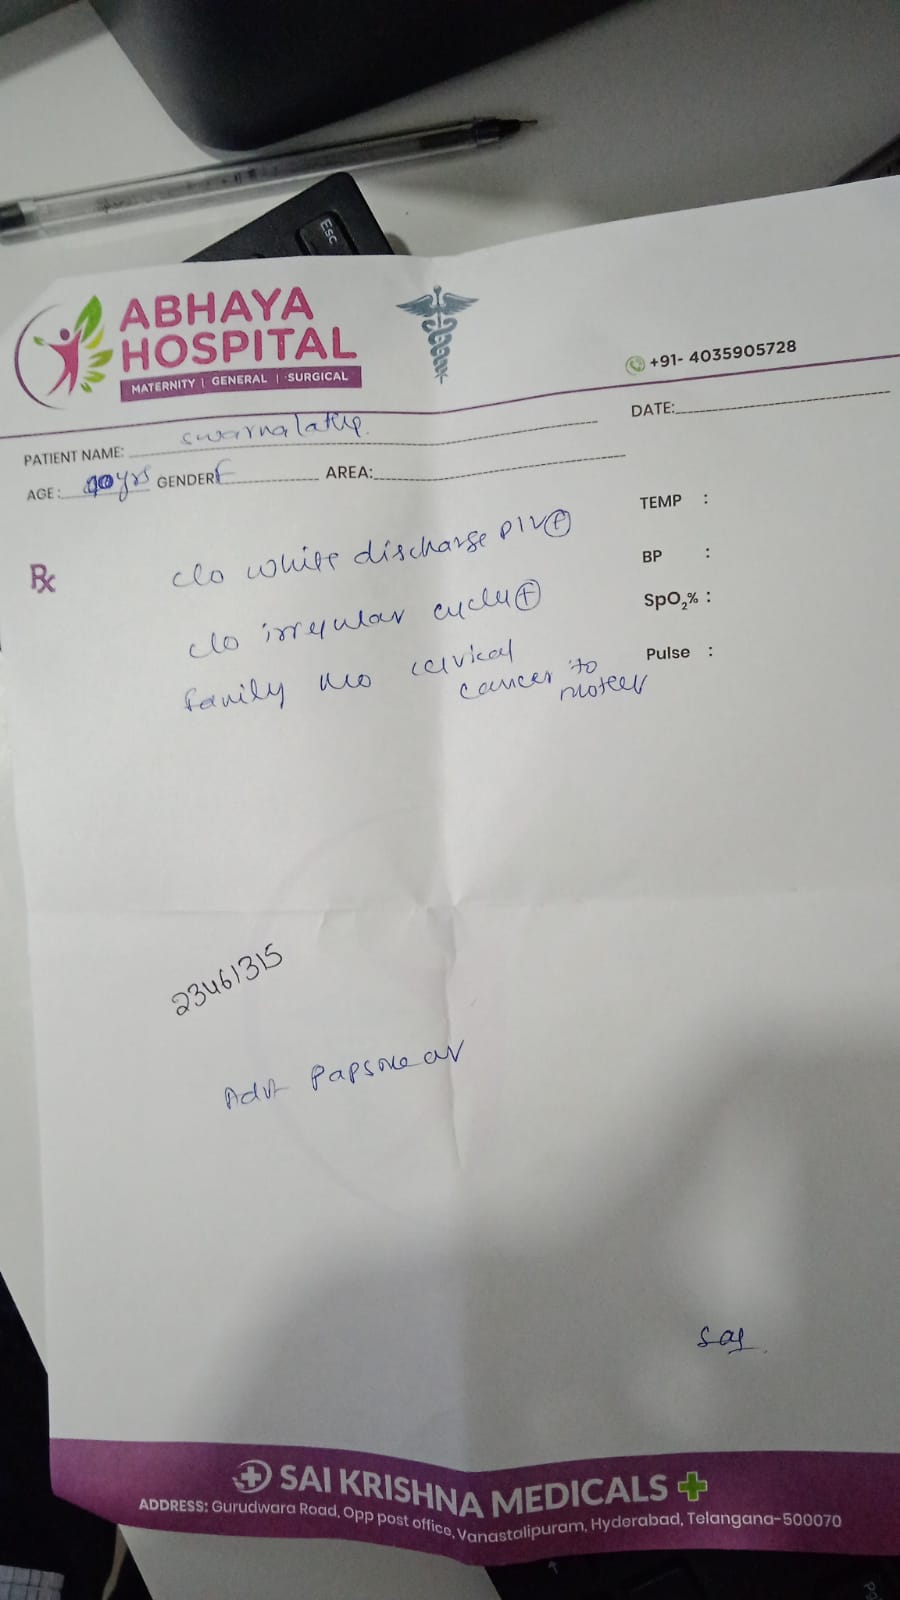 Esc
ABHAYA
HOSPITAL
MATERNITY | GENERAL | SURGICAL
+91- 4035905728
PATIENT NAME: swarnalatha
DATE:
AGE: yrs GENDER F AREA:
TEMP :
BP :
SpO₂% :
Pulse :
Rx
c/o white discharge P/V ⊕
c/o irregular cycle ⊕
family h/o cervical
cancer to
mother
23461315
Adv Papsmear
SAI KRISHNA MEDICALS
ADDRESS: Gurudwara Road, Opp post office, Vanastalipuram, Hyderabad, Telangana-500070